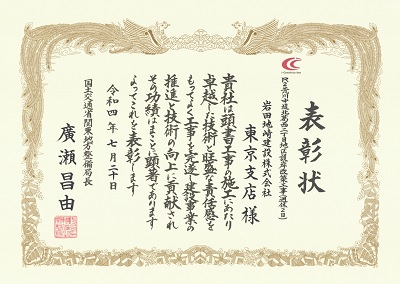 表彰状
岩田地崎建設株式会社
東京支店 様
貴社は頭書工事の施工にあたり
卓越した技術と旺盛な責任感を
もってよく工事を完遂し建設事業の
推進と技術の向上に貢献され
その功績はまことに顕著であります
よってこれを表彰します
令和四年 七月二十日
国土交通省関東地方整備局長
廣瀬昌由